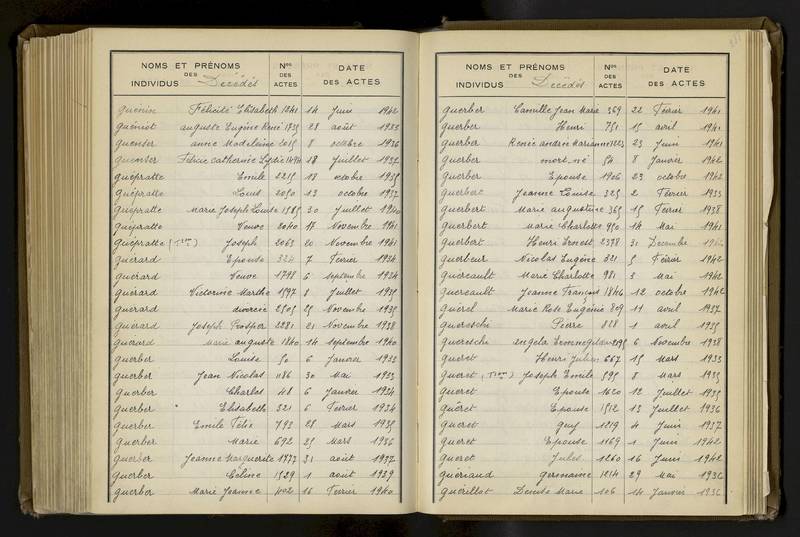 NOMS ET PRÉNOMS DES INDIVIDUS Décédés Nos DES ACTES DATE DES ACTES
Guénin Félicité Elisabeth 1241 14 Juin 1942
Guéniot auguste Eugène René 28 août 1933
Guenser anne Madeleine 2015 8 octobre 1936
Félicie catherine 18 Juillet 1937
Guépratte Emile 2215 18 octobre 1935
Guépratte Louis 2050 13 octobre 1937
Guépratte Marie Joseph Louise 1585 30 Juillet 1940
Guépratte Veuve 2040 17 Novembre 1941
Guépratte Joseph 2063 20 Novembre 1941
Guérard Epouse 324 7 Fevrier 1934
Guerard Veuve 1798 6 septembre 1934
Guérard Victorine Marthe 1597 8 Juillet 1935
Guérard divorcée 2505 25 Novembre 1935
Guerard Joseph Prosper 2281 21 Novembre 1938
Guerard Marie auguste 1840 14 septembre 1940
Guerber Louise 50 6 Janvier 1933
Guerber Jean Nicolas 1186 30 Mai 1933
Guerber Charles 48 6 Janvier 1934
Guerber Elisabeth 321 6 Fevrier 1934
Guerber Emile Félix 793 28 Mars 1935
Guerber Marie 692 25 Mars 1936
Guerber Jeanne Marguerite 1773 31 août 1937
Guerber Céline 1529 1 août 1939
Guerber Marie Jeanne 402 16 Fevrier 1940
NOMS ET PRÉNOMS DES INDIVIDUS Décédés Nos DES ACTES DATE DES ACTES
Guerber Camille Jean Marie 369 22 Fevrier 1941
Guerber Henri 751 15 avril 1941
Guerber Renée andrée 1223 23 Juin 1941
Guerber mort-né 54 8 Janvier 1942
Guerber Epouse 1906 23 octobre 1942
Guerbert Jeanne Louise 325 2 Février 1933
Guerbert Marie augustine 365 15 Fevrier 1938
Guerbert Marie Charlotte 950 14 Mai 1941
Guerbert Henri Ernest 2378 31 Decembre
Guerbeur Nicolas Eugène 321 5 Février 1942
Guercault Marie Charlotte 981 3 Mai 1942
Guercault Jeanne François 1846 12 octobre 1942
Guérel Marie Rose Eugénie 809 11 avril 1937
Guereschi Pierre 828 1 avril 1935
angela 6 Novembre 1938
Gueret Henri Julien 667 15 Mars 1933
Gueret Joseph Emile 595 8 Mars 1935
Gueret Epouse 1620 12 Juillet 1935
Guéret Epouse 1512 13 Juillet 1936
Gueret Guy 1219 4 Juin 1937
Gueret Epouse 1169 1 Juin 1942
Gueret Jules 1260 16 Juin 1942
Guériaud Germaine 1214 29 Mai 1936
Guérillot Denise Marie 106 14 Janvier 1936